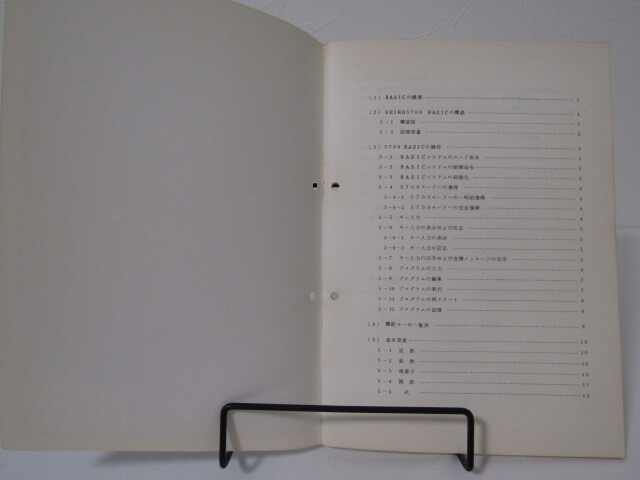 (1) BASICの概要 1
(2) SEIKO5700 BASICの構成 1
2-1 構成図 1
2-2 記憶容量 2
(3) 5700 BASICの操作 3
3-1 BASICシステムのロード命令
3-2 BASICシステムの制御命令
3-3 BASICシステムの初期化
3-4 5700モードへの復帰
3-4-1 5700モードへの一時的復帰
3-4-2 5700モードへの完全復帰
3-5 キー入力
3-6 キー入力の表示および訂正
3-6-1 キー入力の表示
3-6-2 キー入力の訂正
3-7 キー入力の印字および各種メッセージの印字
3-8 プログラムの入力
3-9 プログラムの編集
3-10 プログラムの実行
3-11 プログラムの再スタート
3-12 プログラムの記憶
(4) 機能キーの一覧表 9
(5) 基本要素 10
5-1 定数 10
5-2 変数 10
5-3 演算子
5-4 関数
5-5 式 12